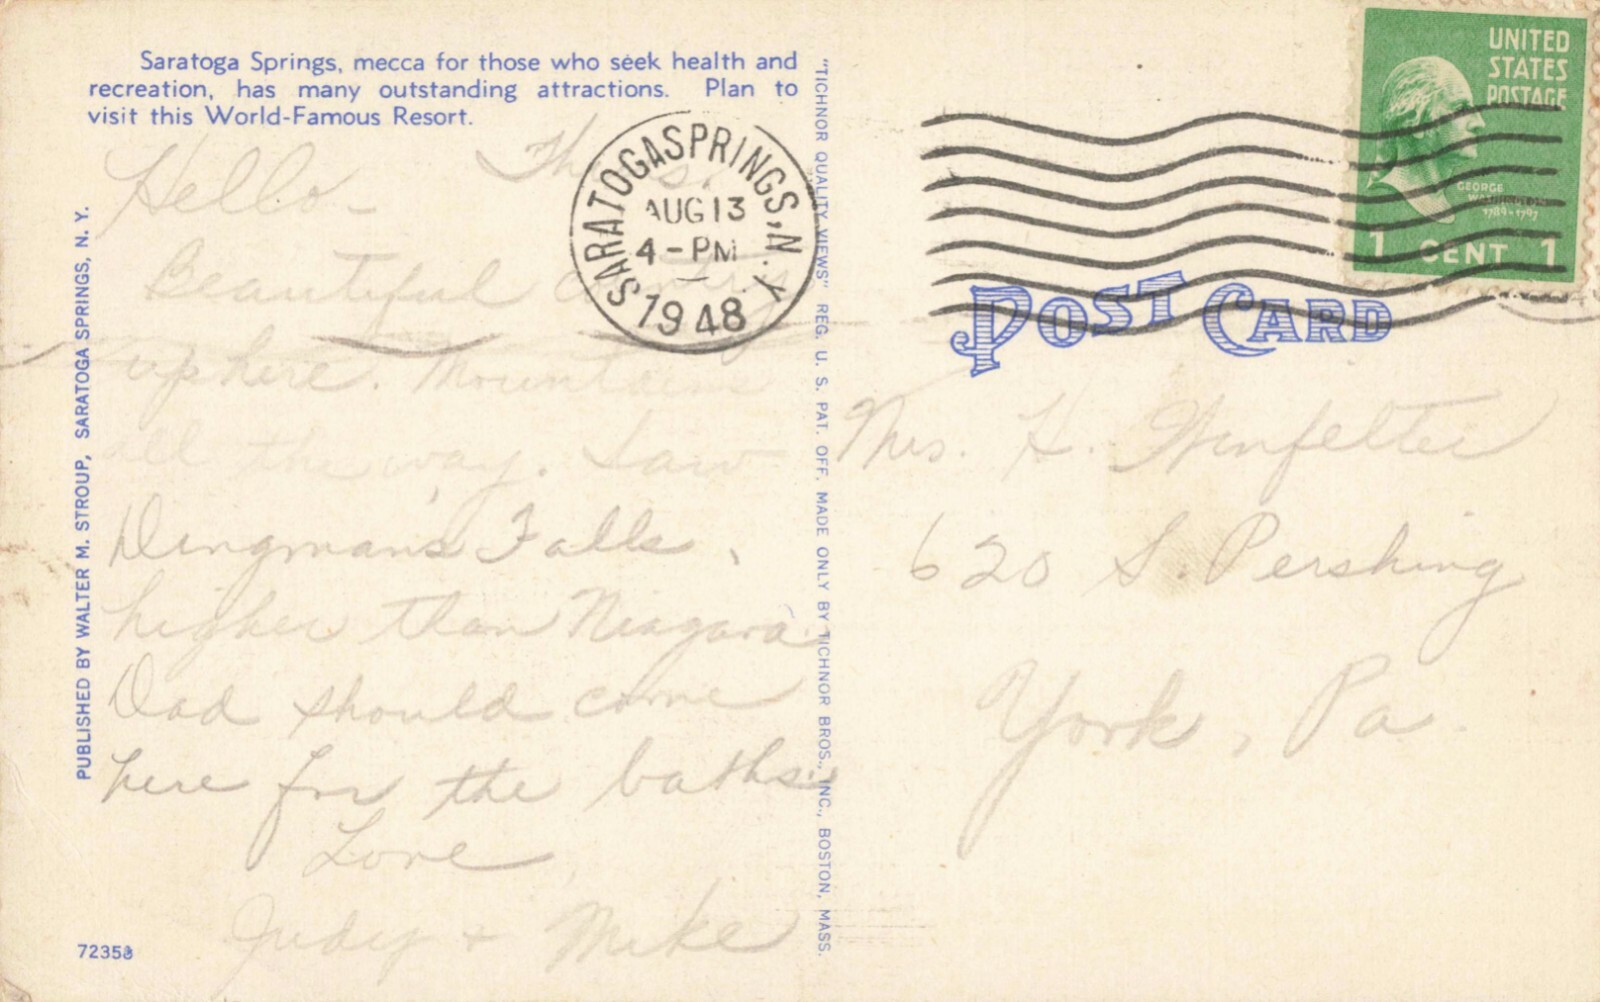 Saratoga Springs, mecca for those who seek health and
recreation, has many outstanding attractions. Plan to
visit this World-Famous Resort.
Hello - Thurs.
Beautiful country
up here. Mountains
all the way. Saw
Dingman's Falls,
higher than Niagara.
Dad should come
here for the baths.
Love,
Judy + Mike
72353
PUBLISHED BY WALTER M. STROUP, SARATOGA SPRINGS, N. Y.
"TICHNOR QUALITY VIEWS" REG. U. S. PAT. OFF. MADE ONLY BY TICHNOR BROS., INC., BOSTON, MASS.
SARATOGA SPRINGS, N.Y.
AUG 13
4 - PM
1948
UNITED
STATES
POSTAGE
GEORGE
WASHINGTON
1789-1797
1 CENT 1
POST CARD
Mrs. H.
620 S. Pershing
York, Pa.